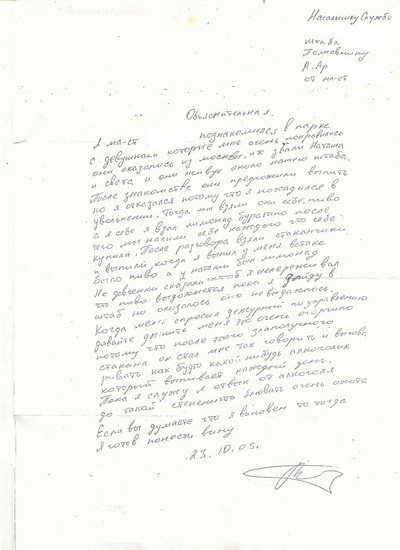 Начальнику Службы
штаба
Полковнику
А. Ар
от пл-ст
Объяснительная.
Я мл-ст познакомился в парке
с девушками которые мне очень понравились
они оказались из москвы, их звали Наташа
и света и они живут около нашего штаба,
После знакомства они предложили выпить
но я отказался потому что я находился в
увольнении. Тогда мы взяли они себе пиво
а я себе я взял лимонад буратино после
чего мы налили себе каждого что себе
купили. После разговора взяли стаканчики
и выпили, когда я выпил у меня в стакане
было пиво а у наташи был лимонад
Но девченки сказали чтоб я непереживал
что пиво выдохнется пока я дойду в
штаб но оказалось оно невыдахлось.
Когда меня спросил дежурный по управлению
давайте дыхните меня это очень огорчило
потому что после этого злополучного
стакана он стал мне так говорить и вызы
зывать как будто какой нибудь алкоголик
который выпивает каждый день.
Пока я служу я отвык от алкоголя
до такой степени что блювать очень охота
Если вы думаете что я виновен то тогда
Я готов понести вину
23.10.05.